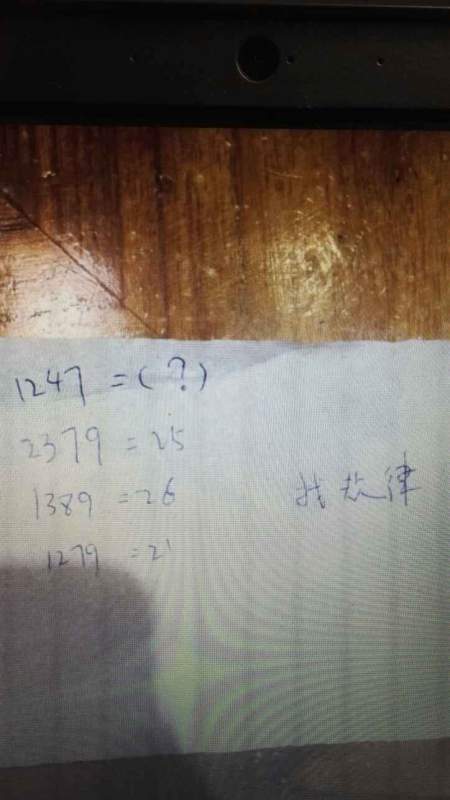 1247 = (?)
2379 = 25
1389 = 26
找规律
1279 = 21